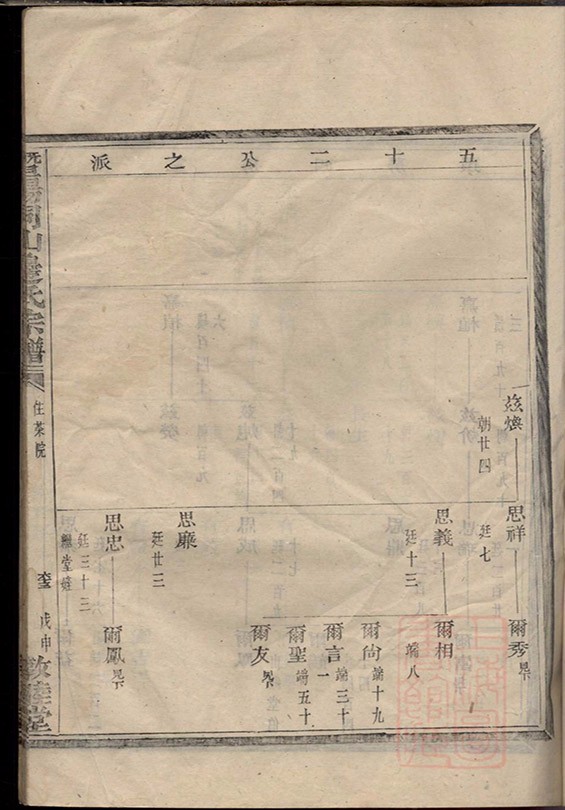 五十二公之派
兹煥
朝廿四
思祥
廷七
爾秀
思義
廷十三
爾相
端八
爾尚
端十九
爾言
端三十一
爾聖
端五十
爾友
思廉
廷廿三
思忠
廷三十三
繼堂
爾鳳
暨陽同山邊氏宗譜
住菜院
戊申
敦睦堂